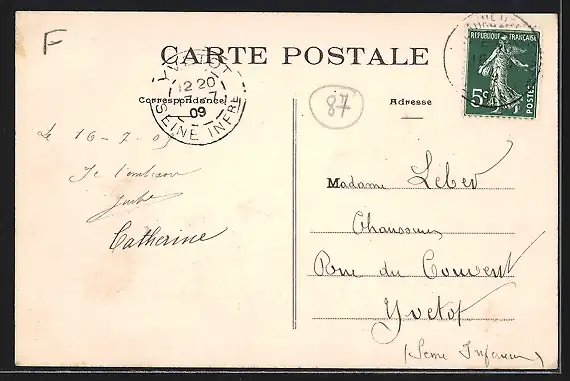 F
CARTE POSTALE
Correspondance
Adresse
87
YVETOT
12 20
17 - 7
09
SEINE INFRE
REPUBLIQUE FRANÇAISE
5c
POSTES
Le 16-7-09
Je t'embrasse
Catherine
Madame Leber
Chaussures
Rue du Couvent
Yvetot
(Seine Inférieure)